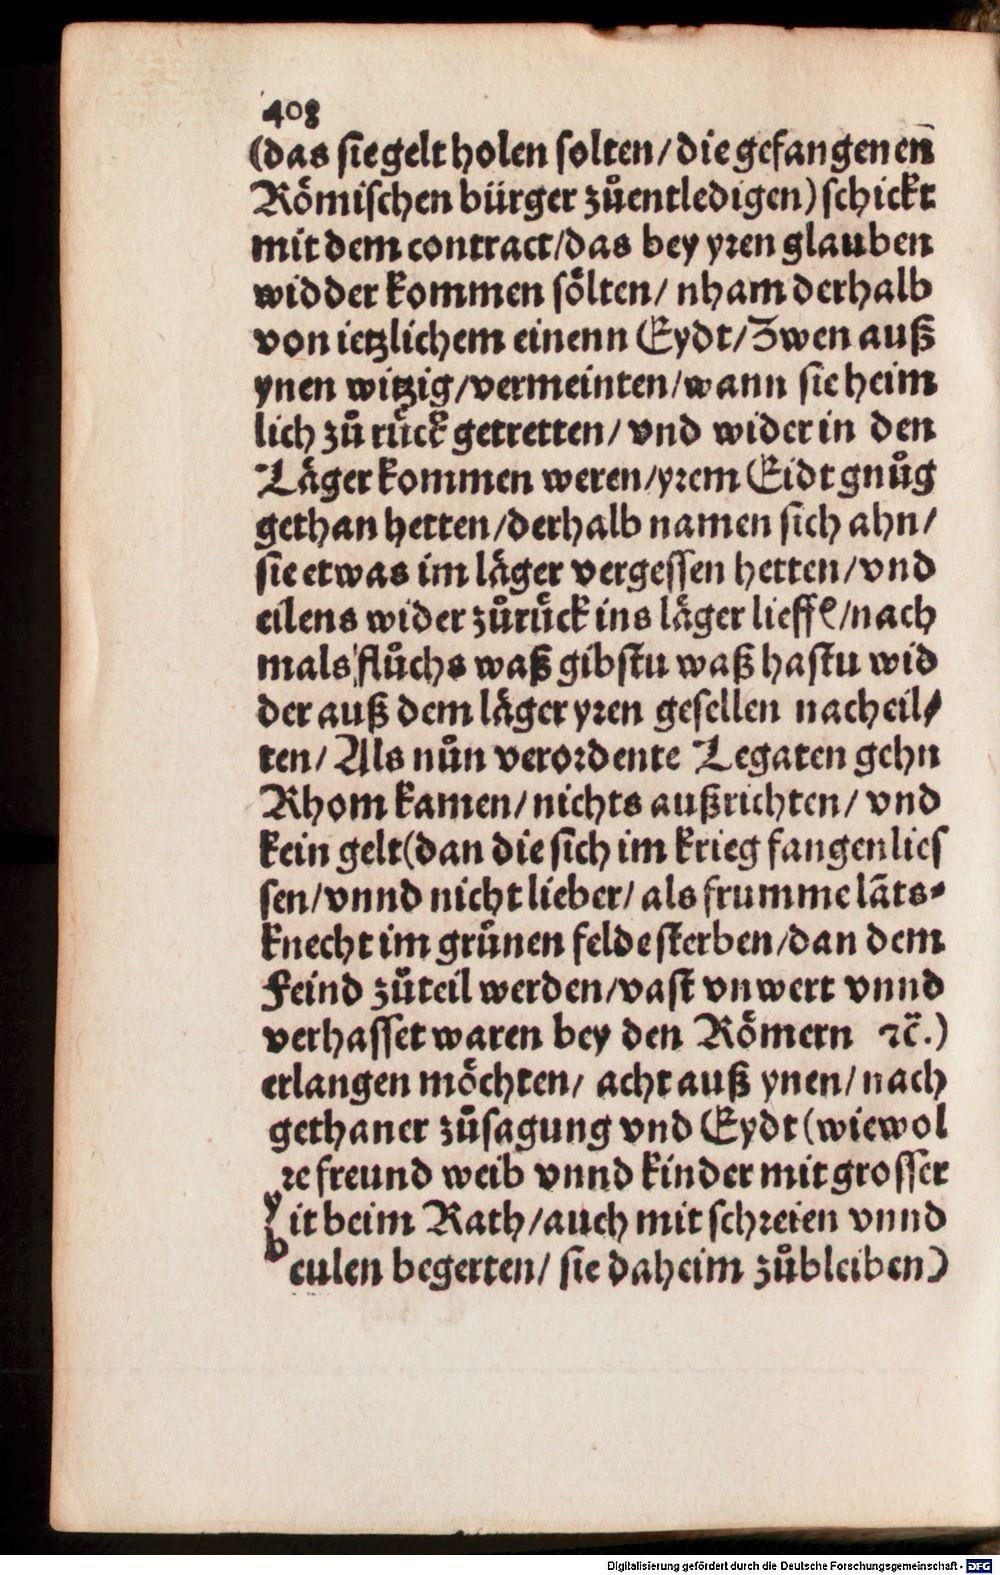 408
(das sie gelt holen solten/ die gefangenen
Römischen bürger zůentledigen) schickt
mit dem contract/das bey yren glauben
widder kommen sölten/ nham derhalb
von ietzlichem einenn Eydt/Zwen auß
ynen witzig/vermeinten/wann sie heim
lich zů růck getretten/ vnd wider in den
Läger kommen weren/yrem Eidt gnůg
gethan hetten/derhalb namen sich ahn/
sie etwas im läger vergessen hetten/vnd
eilens wider zůrůck ins läger lieffẽ/nach
mals flůchs waß gibstu waß hastu wid
der auß dem läger yren gesellen nacheil/
ten/ Als nůn verordente Legaten gehn
Rhom kamen/ nichts außrichten/ vnd
kein gelt(dan die sich im krieg fangen lies
sen/vnnd nicht lieber/ als frumme lãts-
knecht im grůnen felde sterben/dan dem
Feind zůteil werden/vast vnwert vnnd
verhasset waren bey den Römern ⁊c̃.)
erlangen möchten/ acht auß ynen/ nach
gethaner zůsagung vnd Eydt (wiewol
yre freund weib vnnd kinder mit grosser
bit beim Rath/auch mit schreien vnnd
eulen begerten/ sie daheim zůbleiben)
Digitalisierung gefördert durch die Deutsche Forschungsgemeinschaft - DFG